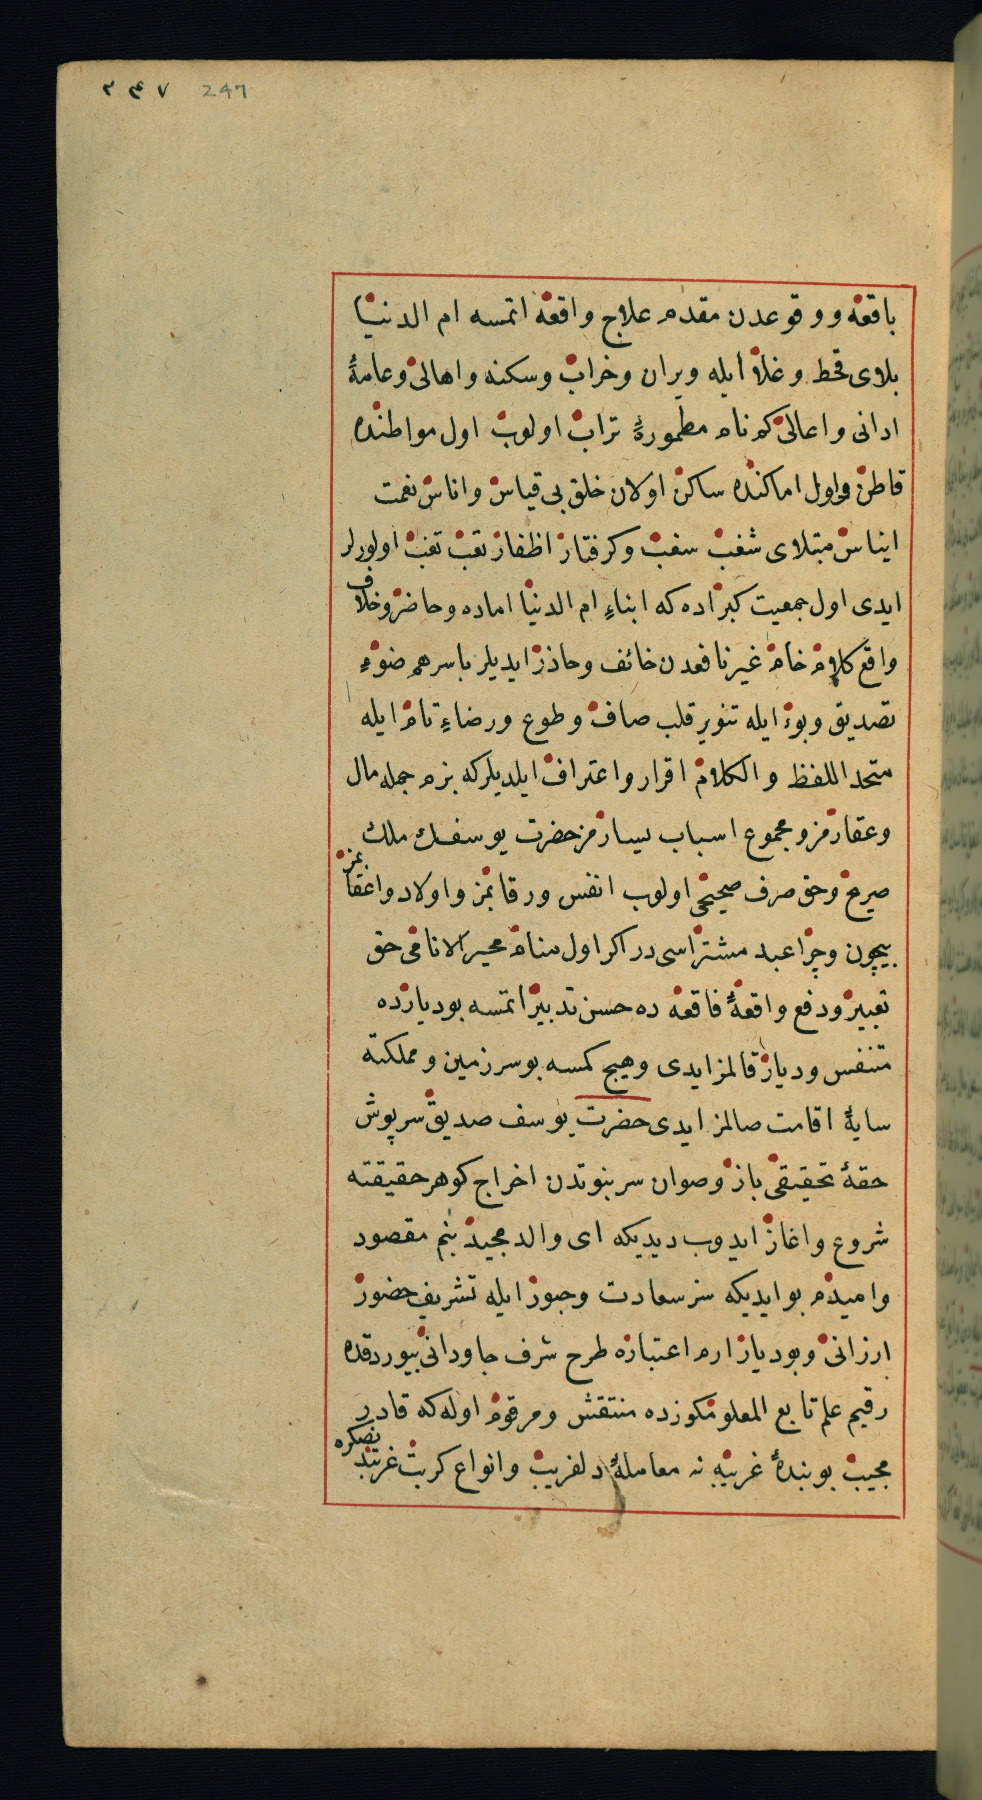 ۲۴۷ 247
باقعه ووقوعدن مقدم علاج واقعه اتمسه ام الدنيا
بلاى قحط وغلا ايله ويران وخراب وسكنه واهالى وعامهٔ
ادانى واعالى كم نام مطمورهٔ تراب اولوب اول مواطنده
قاطن واول اماكنده ساكن اولان خلق بى قياس واناس نعمت
ايناس مبتلاى شغب سغب وكرفتار اظفار تعب تغب اولورلر
ايدى اول جمعيت كبراده كه ابناء ام الدنيا اماده وحاضر وخلاف
واقع كلام خام غير نافعدن خائف وحاذر ايديلر باسرهم ضوء
تصديق وبوء ايله تنوير قلب صاف وطوع ورضاء تام ايله
متحد اللفظ والكلام اقرار واعتراف ايلديلركه بزم جمله مال
وعقارمز ومجموع اسباب يسارمز حضرت يوسفك ملك
صريح وحق صرف صحيحى اولوب انفس ورقابمز واولاد واعقابمز
بيچون وچرا عبد مشتراسى در اكر اول منام محير الانامى حق
تعبير ودفع واقعهٔ فاقعه ده حسن تدبير اتمسه بو ديارده
متنفس وديار قالمز ايدى وهيچ كمسه بو سرزمين ومملكته
سايهٔ اقامت صالمز ايدى حضرت يوسف صديق سرپوش
حقهٔ تحقيقى باز وصوان سربنوتدن اخراج كوهر حقيقته
شروع واغاز ايدوب ديديكه اى والد مجيد بنم مقصود
واميدم بو ايديكه سز سعادت وحبور ايله تشريف حضور
ارزانى وبو ديار ارم اعتباره طرح شرف جاودانى بيوردقده
رقيم علم تابع المعلومكوزده منتقش ومرقوم اوله كه قادر
مجيب بو بندهٔ غريبه نه معاملهٔ دلفريب وانواع كربت غربتد نصكره